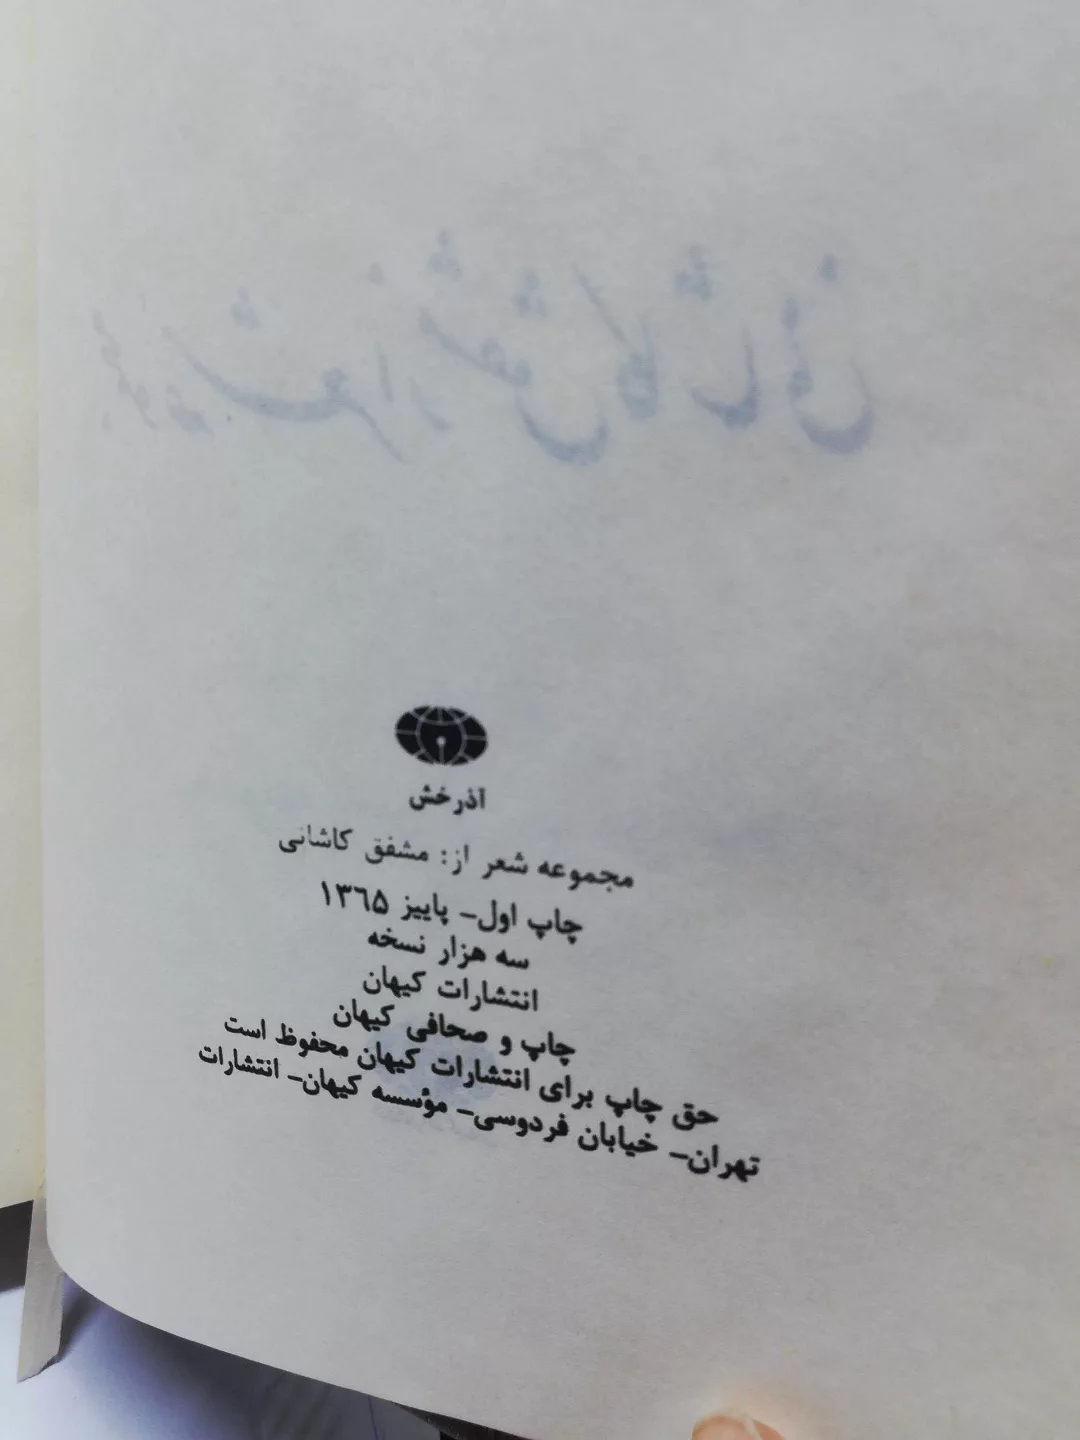 آذرخش
مجموعه شعر از: مشفق کاشانی
چاپ اول- پاییز ۱۳٦۵
سه هزار نسخه
انتشارات کیهان
چاپ و صحافی کیهان
حق چاپ برای انتشارات کیهان محفوظ است
تهران- خیابان فردوسی- مؤسسه کیهان- انتشارات